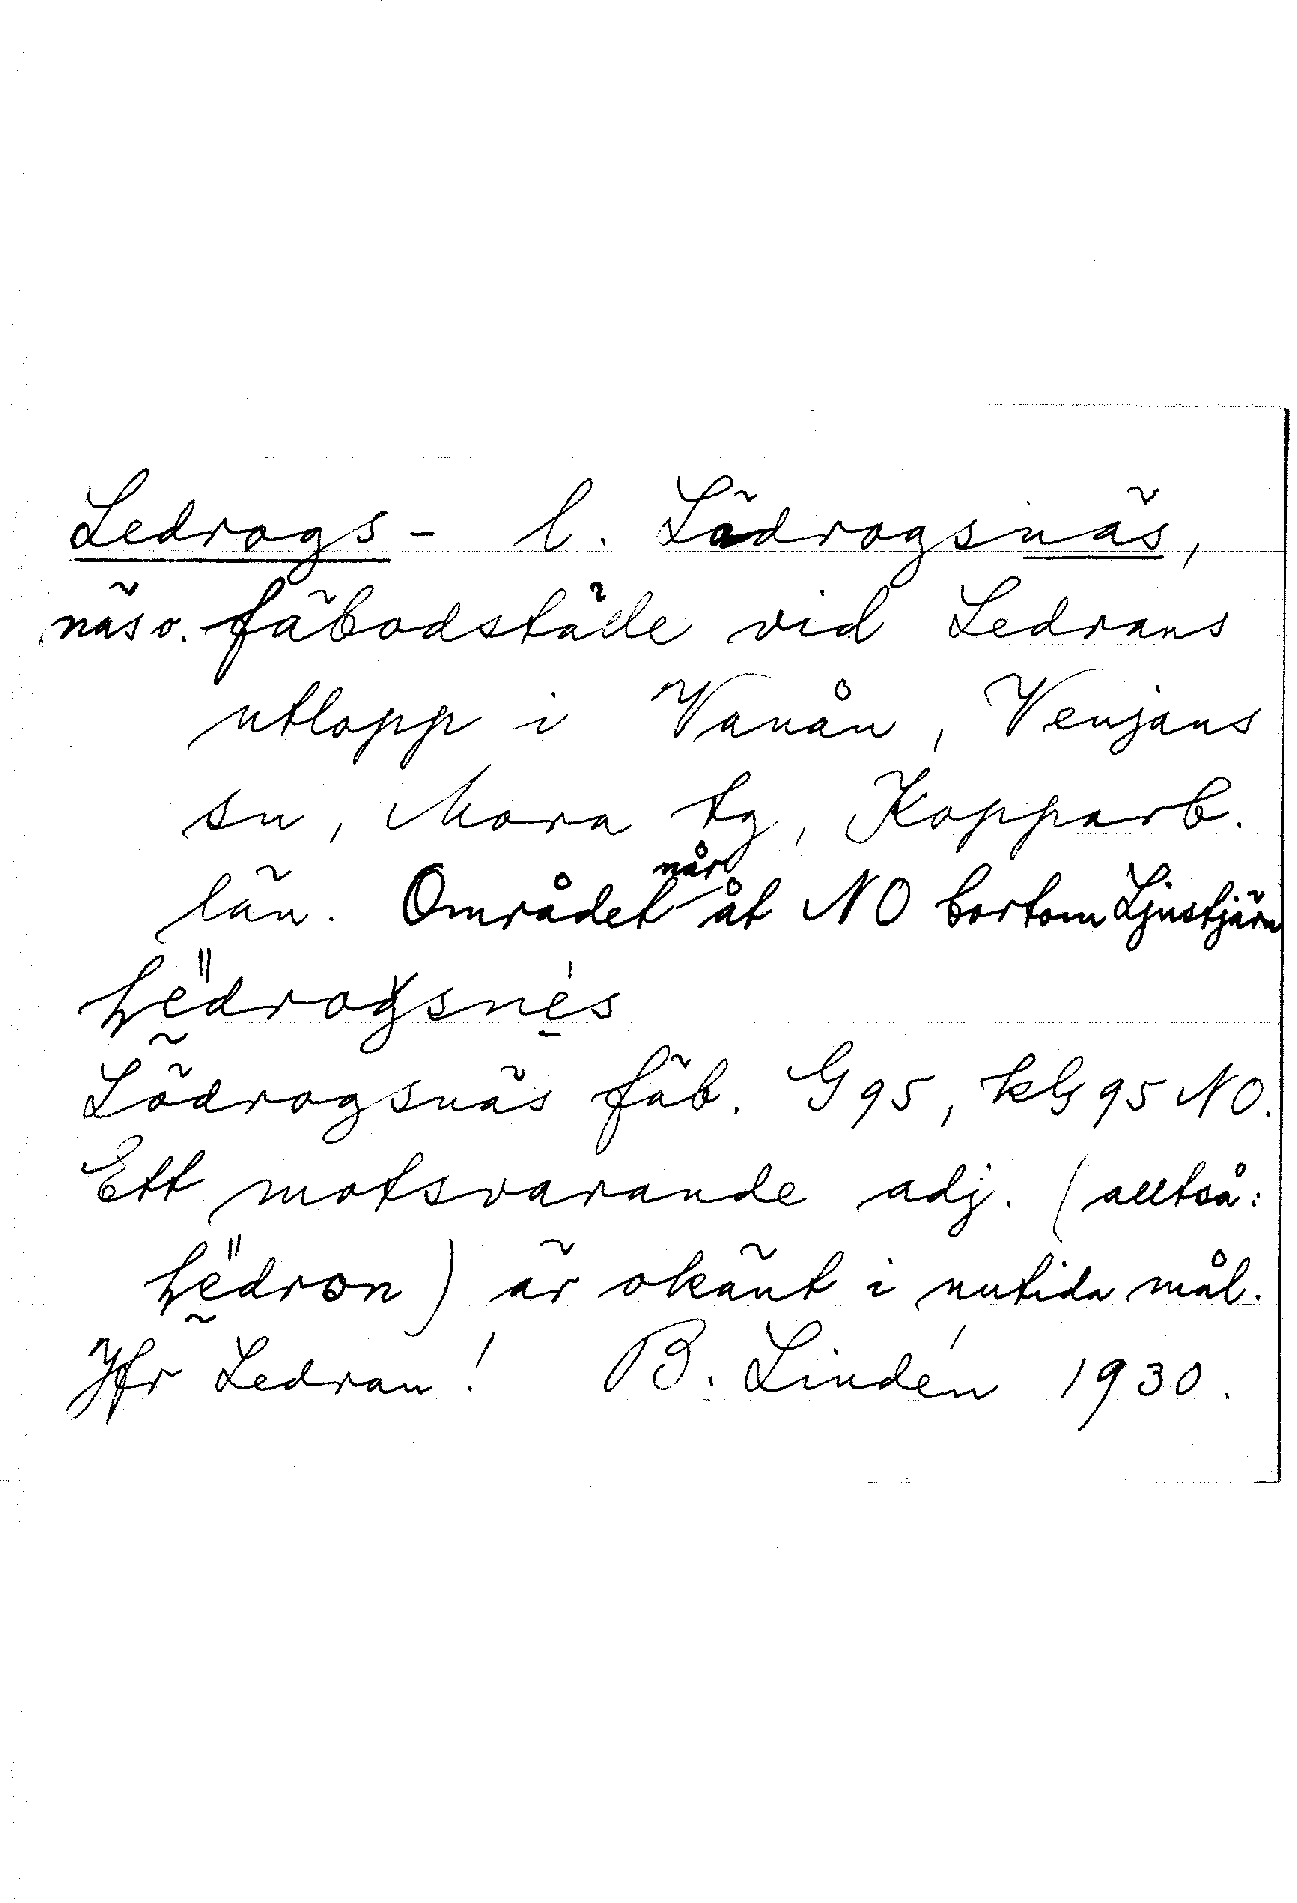 Ledrogs- l. Lädrogsnäs,
näs o. fäbodställe vid Ledrans
utlopp i Vanån, Venjans
sn, Mora tg, Kopparb.
län. Området når åt NO bortom Ljustjärn
lëdrogsnés
Lödrogsnäs fäb. G 95, kG 95 NO.
Ett motsvarande adj. (alltså:
lëdron) är okänt i nutida mål.
Jfr Ledran! B. Lindén 1930.